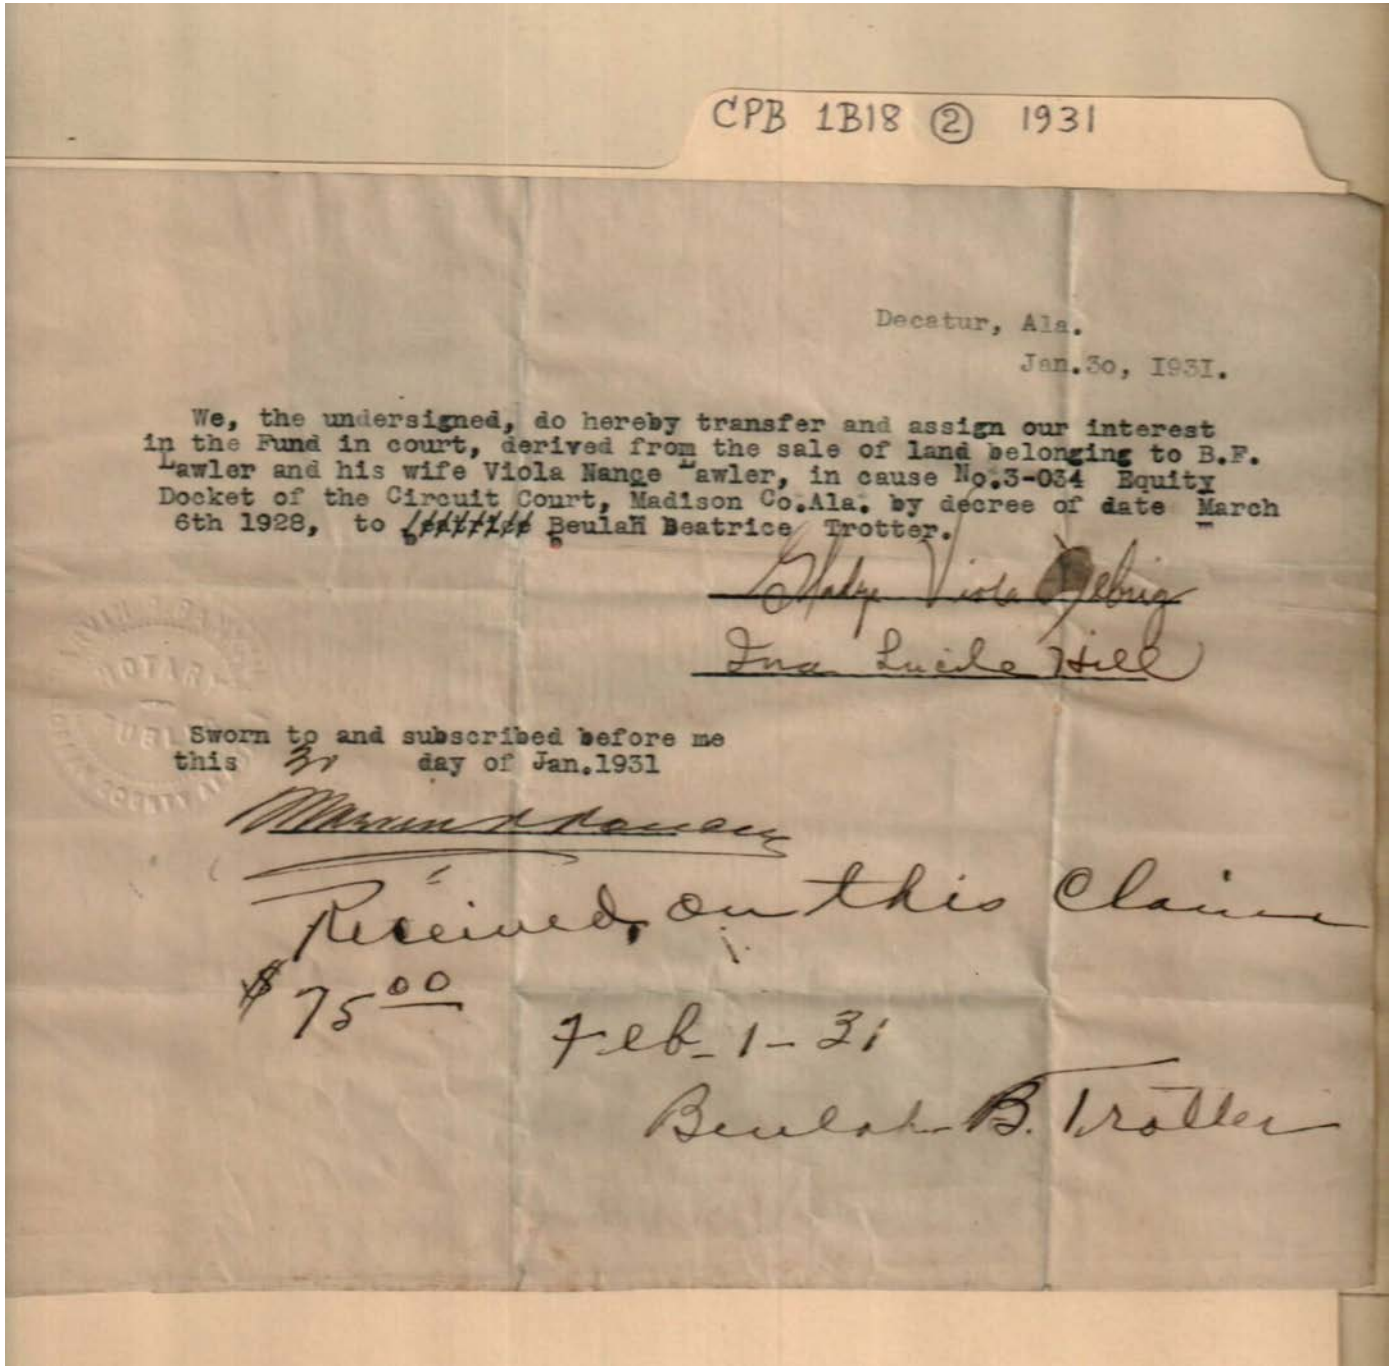 CPB 1B18 ② 1931
Decatur, Ala.
Jan.3o, I93I.
We, the undersigned, do hereby transfer and assign our interest
in the Fund in court, derived from the sale of land belonging to B.F.
Lawler and his wife Viola Nance Lawler, in cause No.3-034 Equity
Docket of the Circuit Court, Madison Co.Ala. by decree of date March
6th 1928, to Beulah Beatrice Trotter.
Gladys Viola
Ina Lucile Hill
NOTARY
PUBLIC
Sworn to and subscribed before me
this 30 day of Jan.1931
Received on this Claim
$ 75 00
Feb-1-31
Beulah B. Trotter